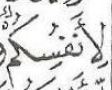 لِأَنفُسِكُم